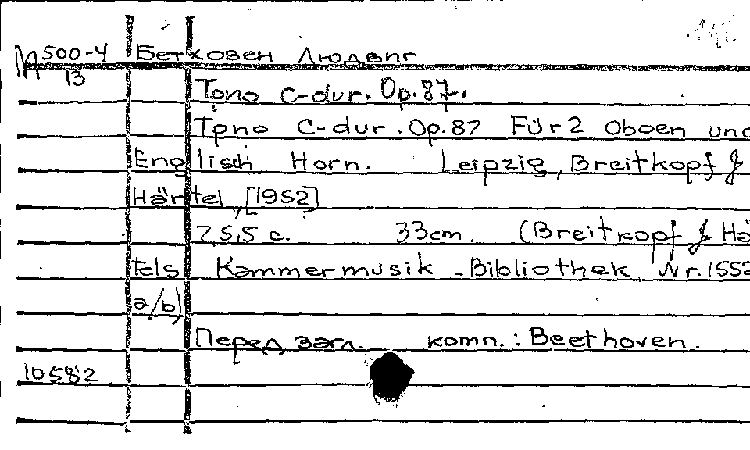 500-4 Бетховен Людвиг
13
Трио C-dur. Op.87.
Трио C-dur. Op.87 Für 2 Oboen und
Englisch Horn. Leipzig, Breitkopf &
Härtel, [1952]
7,5,5 с. 33cm. (Breitkopf & Hä
tels Kammermusik-Bibliothek, Nr.1552
a/b)
Перед загл. комп.: Beethoven.
10582